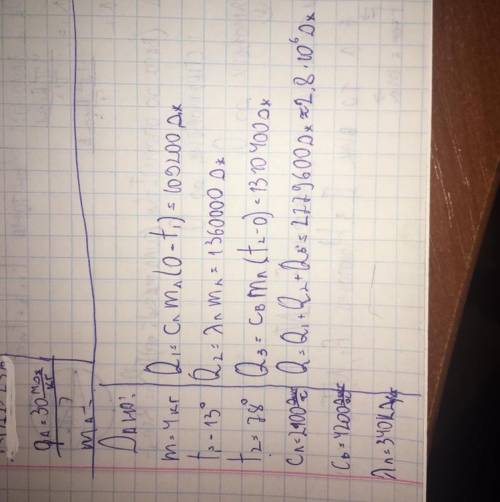 qл = 30 МДж/кг
mл - ?
Дано:
m = 4 кг
t₁ - 13°
t₂ = 78°
Cл = 2100
Cв = 4200
λл = 340к
Q₁ = Cл mл (0 - t₁) = 109200 Дж
Q₂ = λл mл = 1360000 Дж
Q₃ = Cв mл (t₂ - 0) = 1310400 Дж
Q = Q₁ + Q₂ + Q₃ = 2779600 Дж ≈ 2,8 · 10⁶ Дж